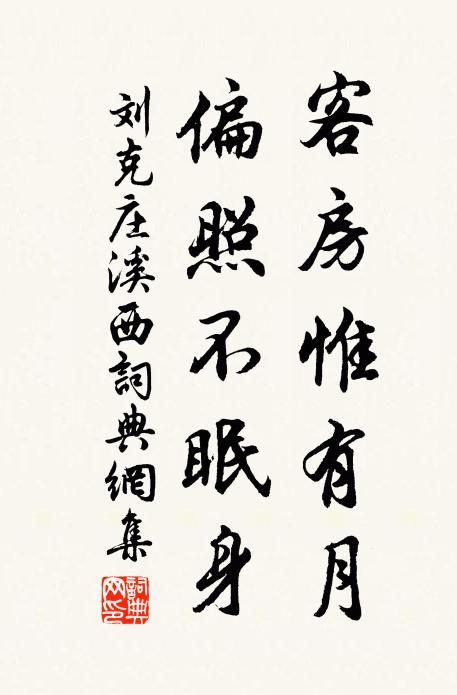 客房惟有月
偏照不眠身
刘克庄溪西詞典網集
詞典网印